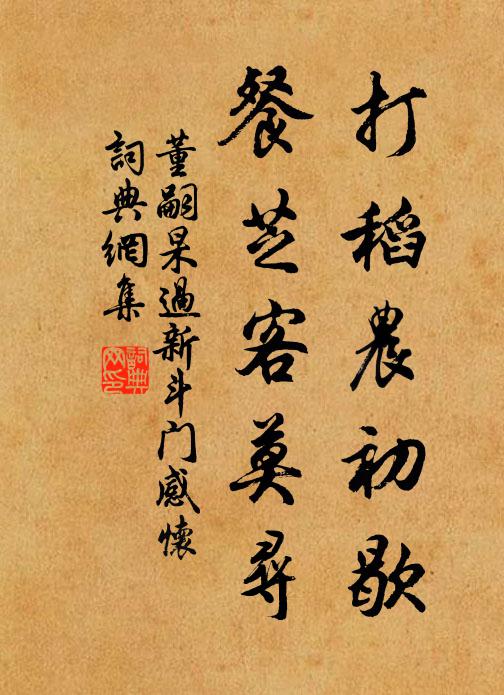 打稻農初歇
餐芝客莫尋
董嗣杲過新斗門感懷
詞典網集
詞典網印